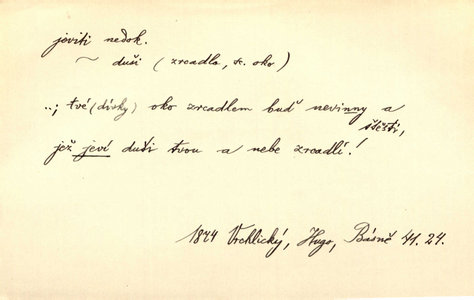 jeviti nedok.
~ duši (zrcadlo, sc. oko)
..; tvé (dívky) oko zrcadlem buď nevinny a
štěstí,
jež jeví duši tvou a nebe zrcadlí!
1874 Vrchlický, Hugo, Básně 41.24.